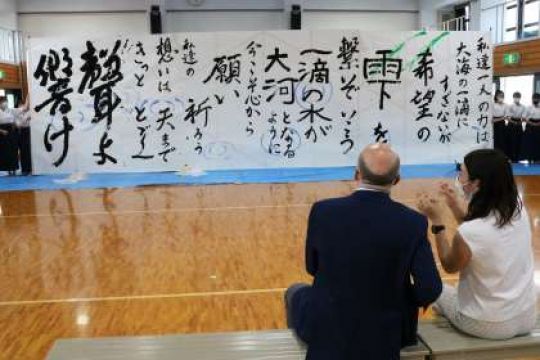 私達一人の力は
大海の一滴に
すぎないが
希望の
雫を
繋いでいこう
一滴の水が
大河となる
ように
今こそ心から
願い
祈ろう
私達の
想いは天まで
きっととどく
聲よ
響け